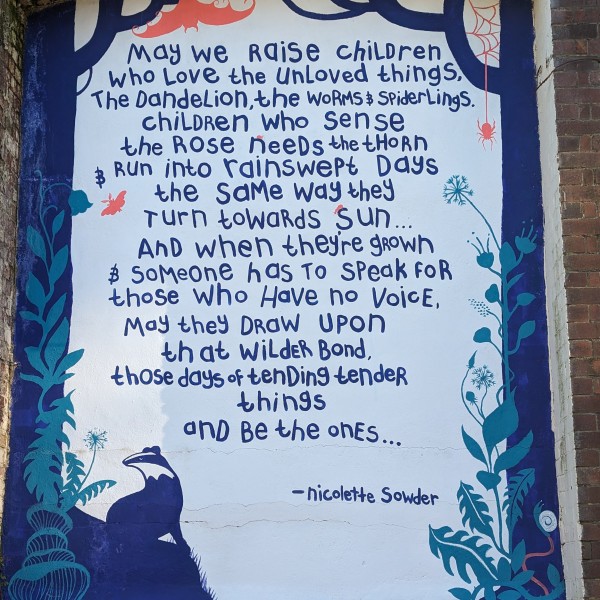 May we raise children
who love the unloved things,
The Dandelion, the worms & spiderlings.
children who sense
the rose needs the thorn
& run into rainswept days
the same way they
turn towards sun...
And when they're grown
& someone has to speak for
those who have no voice,
may they draw upon
that wilder bond,
those days of tending tender
things
and be the ones...
- nicolette sowder